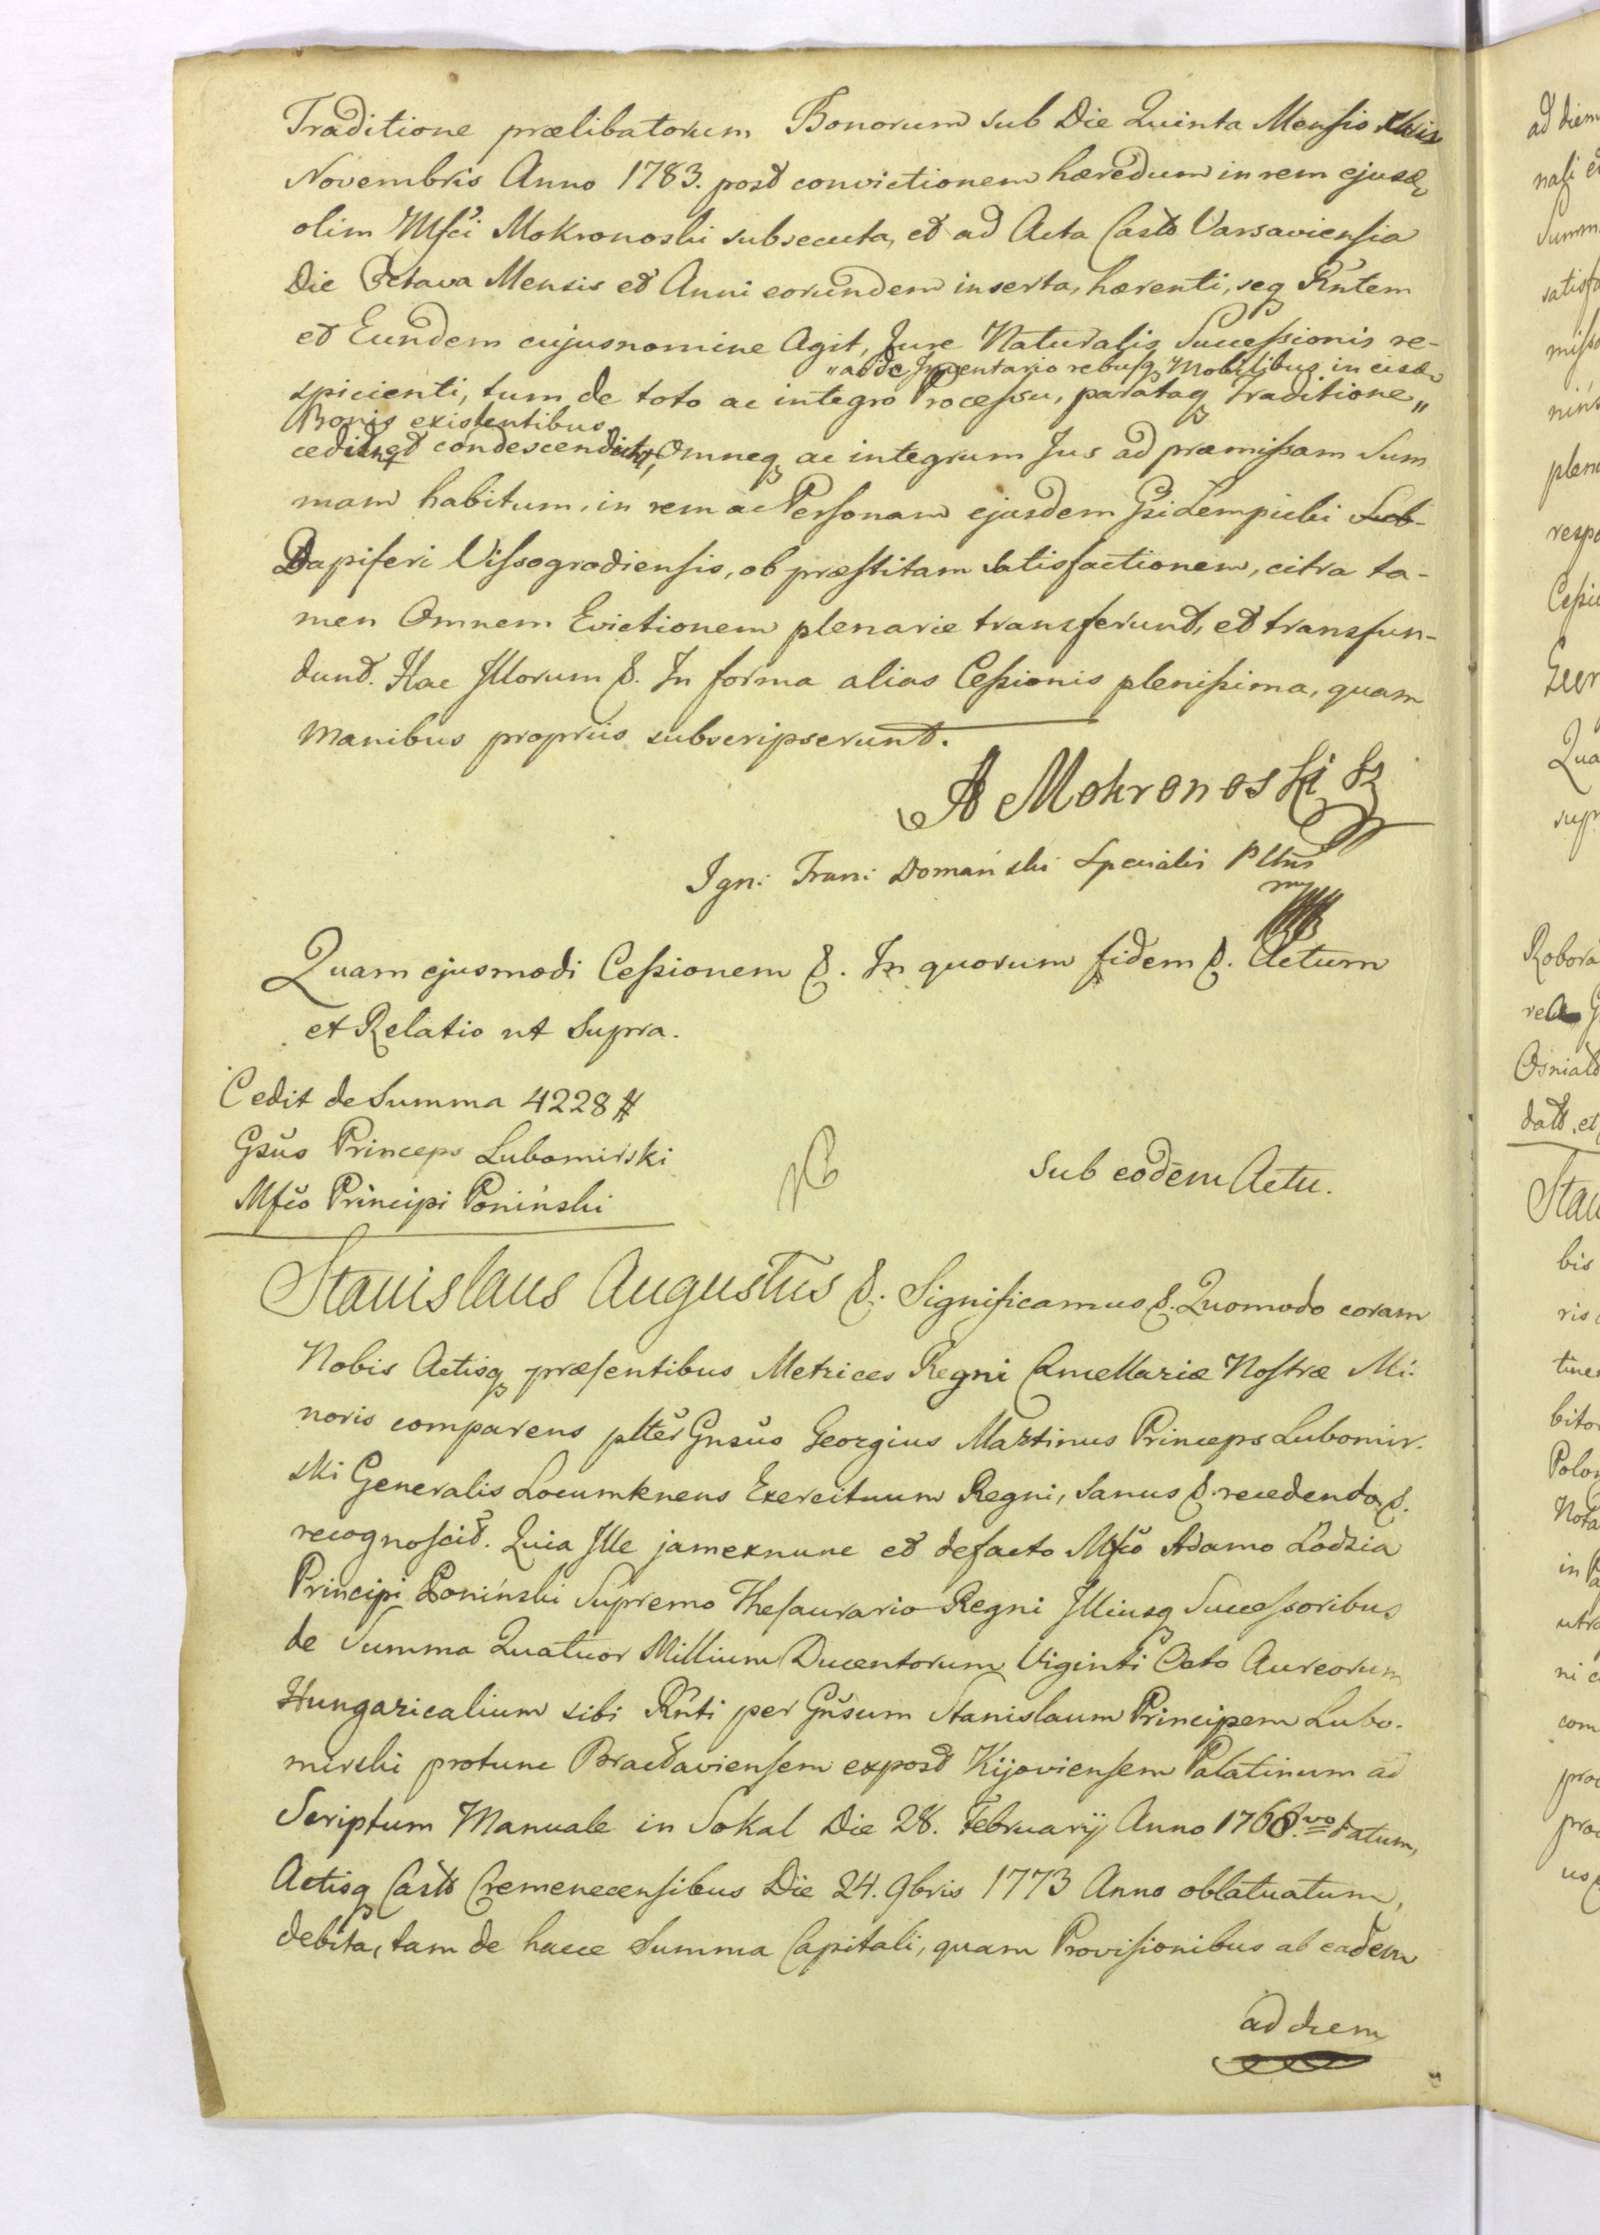 Traditione prælibatorum Bonorum sub Die Quinta Mensis
Novembris Anno 1783. post convictionem hæredum in rem ejusd
olim Mfci Mokronoski subsecuta, et ad Acta Castr Varsaviensia
Die Octava Mensis et Anni eorundem inserta, hærenti, seq Rntem
et Eundem cujus nomine Agit, Jure Naturalis Successionis re-
"ac de Inventario rebusq Mobilibus in eisd
spicienti, tum de toto ac integro Processu, parataq Traditione"
Bonis existentibus
cedit et condescendit, Omneq ac integrum Jus ad præmissam Sum
mam habitum, in rem ac Personam ejusdem Gsi Lempicki Sub-
Dapiferi Vissogrodiensis, ob præstitam satisfactionem, citra ta-
men Omnem Evictionem plenarie transferunt, et transfun-
dunt. Hac Illorum &. In forma alias Cessionis plenissima, quam
Manibus propriis subscripserunt.
A Mokronoski
Ign: Fran: Domański Specialis Pltns
mp
Quam ejusmodi Cessionem &. In quorum fidem &. Actum
et Relatio ut Supra.
Cedit de Summa 4228 #
Gsus Princeps Lubomirski
Mfco Principi Poniński
NB
Sub eodem Actu.
Stanislaus Augustus &. Significamus &. Quomodo coram
Nobis Actisq præsentibus Metrices Regni Cancellariæ Nostræ Mi-
noris comparens plter Gnsus Georgius Martinus Princeps Lubomir-
ski Generalis Locumtenens Exercituum Regni, sanus &. recedendo &.
recognoscit. Quia Ille jam exnunc et defacto Mfco Adamo Łodzia
Principi Poniński Supremo Thesaurario Regni Illiusq Successoribus
de Summa Quatuor Millium Ducentorum Viginti Octo Aureorum
Hungaricalium sibi Rnti per Gnsum Stanislaum Principem Lubo-
mirski protunc Braclaviensem expost Kijoviensem Palatinum ad
Scriptum Manuale in Sokal Die 28. Februarij Anno 1768.vo datum,
Actisq Castr Cremenecensibus Die 24. 9bris 1773 Anno oblatuatum,
debita, tam de hacce Summa Capitali, quam Provisionibus ab eadem
ad diem